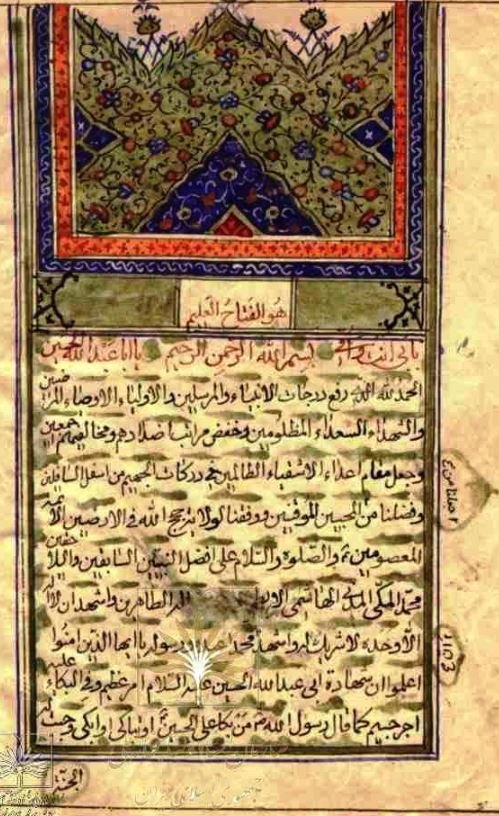 هو الفتاح العليم
بابی انت و امی بسم الله الرحمن الرحیم یا ابا عبد الله الحسین
الحمد لله الذی رفع درجات الانبیاء والمرسلین والاولیاء الاوصیاء المرضیین
والشهداء السعداء المظلومین وخفض مراتب اضدادهم ومخالفیهم اجمعین
وجعل مقام اعداء الاشقیاء الظالمین فی درکات الجحیم من اسفل السافلین
وفضلنا من المحبین الموقنین ووفقنا لولا حجج الله فی الارضین الائمة
المعصومین والصلوة والسلام علی افضل النبیین السابقین واللاحقین
محمد المکی المدنی الهاشمی واله الطاهرین واشهد ان لا اله
الا الله وحده لا شریک له واشهد محمد عبده ورسوله یا ایها الذین امنوا
اعلموا ان شهادة ابی عبد الله الحسین علیه السلام امر عظیم وفی البکاء علیه
اجر جسیم کما قال رسول الله من بکا علی الحسین او تباکی او ابکی وجبت له
الجنة